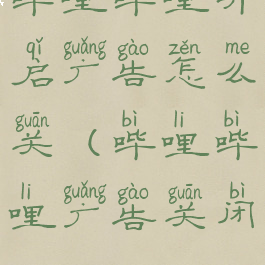 qǐ guǎng gào zěn me
启广告怎么
guān bì li bì
关（哔哩哔
li guǎng gào guān bì
哩广告关闭